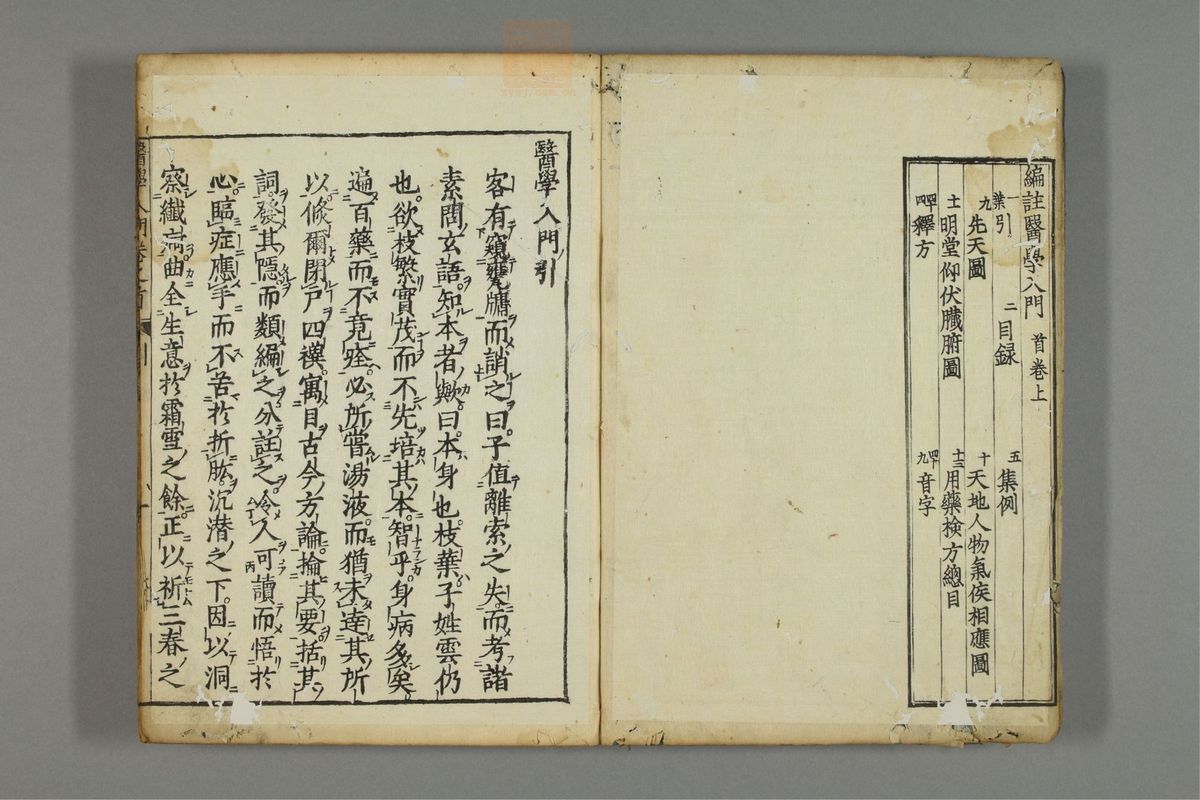 編註醫學入門 首卷上
一葉引 二目録 五集例
九先天圖 十天地人物氣候相應圖
十一明堂仰伏臟腑圖 十三用藥検方總目
四四釋方 四九音字
醫學入門引
客有窺甕牖而誚之曰子值離索之失而考諸
素問玄語知本者歟曰本身也枝葉子姓雲仍
也欲枝繁實茂而不先培其本智乎身病多矣
遍百藥而不竟痊必所嘗湯液而猶未達其所
以倐爾閉戸四禩寓目古今方論掄其要括其
詞發其隱而類編之分註之冷人可讀而悟於
心臨症應手而不苦於折肱沉潜之下因以洞
察纖疴曲全生意於霜雪之餘正以祈三春之